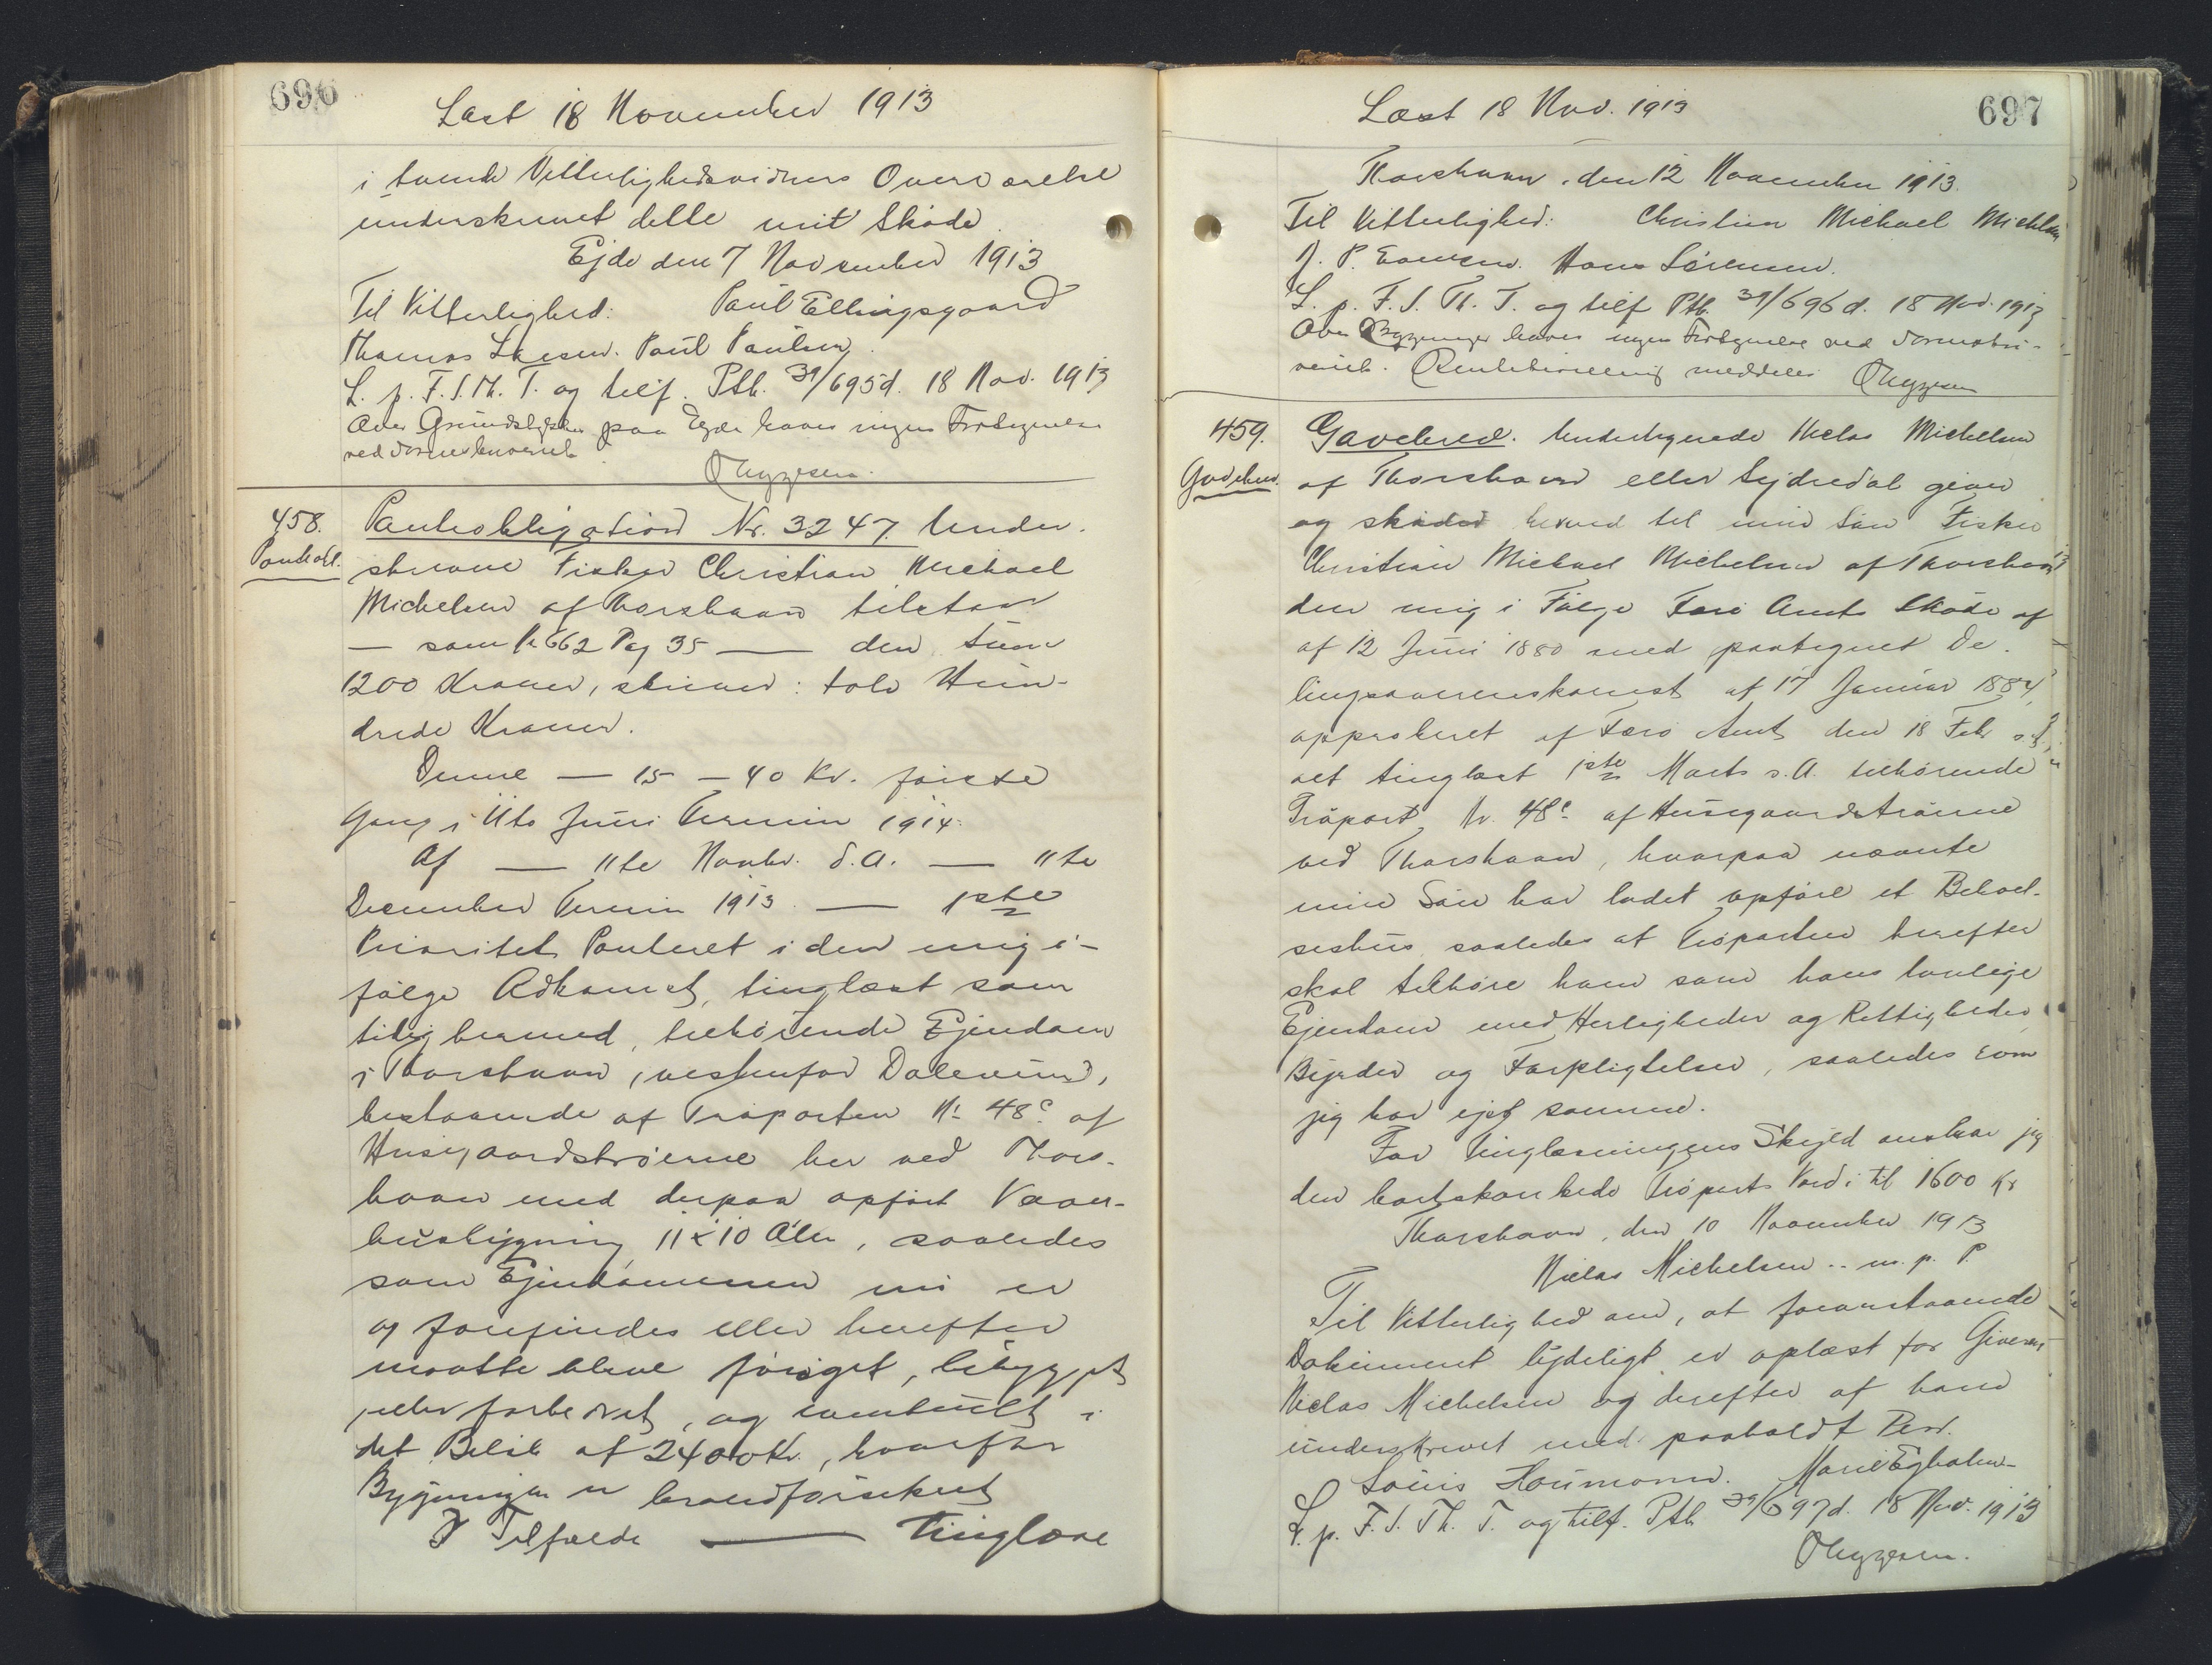 696
Læst 18 November 1913
i tvende Vitterlighedsvidners Overværelse
underskrevet dette mit Skøde.
Ejde den 7 November 1913
Til Vitterlighed: Paul Ellingsgaard
Thomas Larsen. Paul Paulsen
L. p. F. S. Th. T. og tilf. Ptb. 39/695 d. 18 Nov. 1913
Over Grundstykker paa Ejde haves ingen Forbeyelse
ved Dommerkontoret
458.
Panteobl.
Panteobligation Nr. 3247. Under-
skrevne Fisker Christian Michael
Michelsen af Thorshavn tilstaar
— som Nr 662 Pag 35 — den Sum
1200 Kroner, skriver: tolv Hun-
drede Kroner.
Denne — 15 — 40 Kr. første
Gang i 11te Juni Termin 1914.
Af — 11te Novbr. d.A. — 11te
December Termin 1913 — 1ste
Prioritets Panteret i den mig i-
følge Adkomst, tinglæst sam-
tidig hermed, tilhørende Ejendom
i Thorshavn, vestenfor Dalevina,
bestaaende af Trøparten Nr. 48c af
Husegaardstrøerne her ved Thors-
havn med derpaa opført Vaan-
husbygning 11 x 10 Alen, saaledes
som Ejendommen nu er
og forefindes eller herefter
maatte blive forøget, bebygget
eller forbedret, og eventuelt i
det Beløb af 2400 Kr., hvorfor
Bygningen er brandforsikret
I Tilfælde — tinglæse
697
Læst 18 Nov. 1913
Thorshavn, den 12 November 1913.
Til Vitterlighed: Christian Michael Michelsen
J. P. Hans Sørensen.
L. p. F. S. Th. T. og tilf Ptb. 39/696 d. 18 Nov. 1913
Over Bygninger haves ingen ved
meddeles
459.
Gavebrev.
Gavebrev. Undertegnede Niclas Michelsen
af Thorshavn eller Sydredal giver
og skøder herved til min Søn Fisker
Christian Michael Michelsen af Thorshavn
den mig i Følge Færø Amts Skøde af
af 12 Juni 1880 med paategnet De-
lingsoverenskomst af 17 Januar 1884,
approberet af Færø Amt den 18 Febr s.A.
alt tinglæst 1ste Marts s.A. tilhørende
Trøpart, Nr. 48c af Husegaardstrøerne
ved Thorshavn, hvorpaa nævnte
min Søn har ladet opføre et Beboel-
seshus, saaledes at Trøparten herefter
skal tilhøre ham som hans lovlige
Ejendom med Herligheder og Rettigheder,
Byrder og Forpligtelser, saaledes som
jeg har ejet samme.
For Tinglæsningens Skyld anslaar jeg
den bortskænkede Trøparts Værdi til 1600 Kr
Thorshavn, den 10 November 1913
Niclas Michelsen .. m. p. P.
Til Vitterlighed om, at foranstaaende
Dokument tydeligt er oplæst for Giveren
Niclas Michelsen og derefter af ham
underskrevet med paaholdt Pen.
Louis Houmann. Marie Egholm
L. p. F. S. Th. T. og tilf. Ptb 39/697 d. 18 Nov. 1913